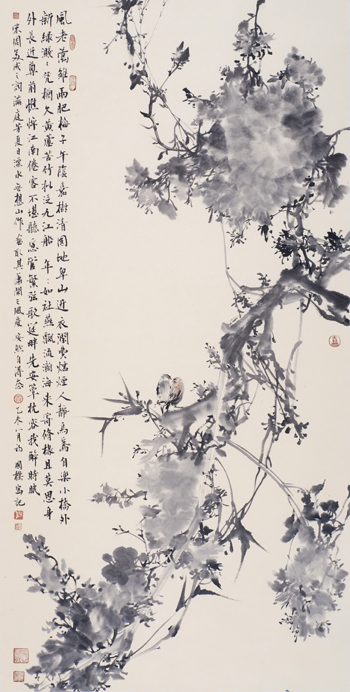 風老鶯雛雨肥梅子午陰嘉樹清圓地卑山近衣潤費爐煙人靜烏鳶自樂小橋外
新綠濺〻凭欄久黃蘆苦竹擬泛九江船年〻如社燕飄流瀚海來寄修椽且莫思身
外長近尊前憔悴江南倦客不堪聽急管繁弦歌筵畔先安簟枕容我醉時眠
宋周美成之詞滿庭芳夏日溧水無想山作寫取其蕭閒之風度安然自得乙未八月初